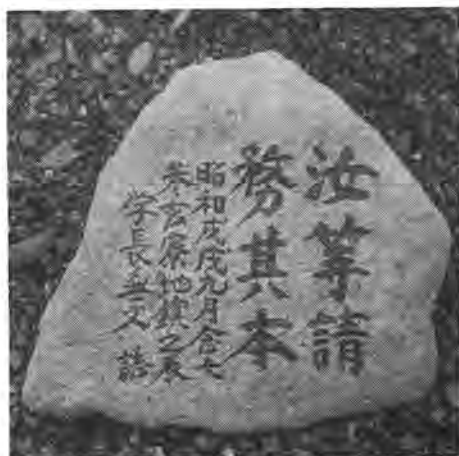 汝等請
務其本
昭和戊戌九月念七
玄原地鎮之辰
学長無文 誌